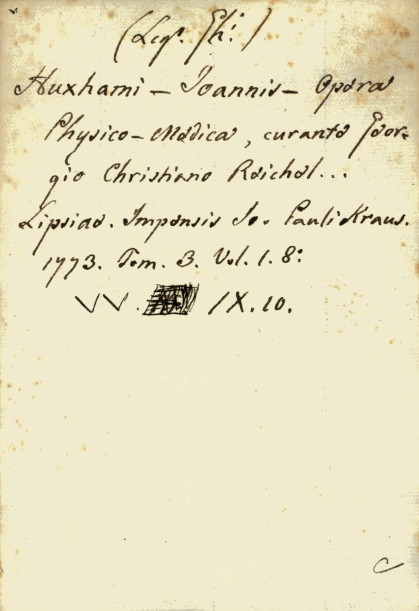 (Legs. Gh.)
Huxhami - Joannis - Opera
Physico-Medica, curante Geor-
gio Christiano Reichel...
Lipsiae. Impensis Jo. Pauli Kraus.
1773. Tom. 3. Vol. 1. 8º
VV. IX. 10.
C